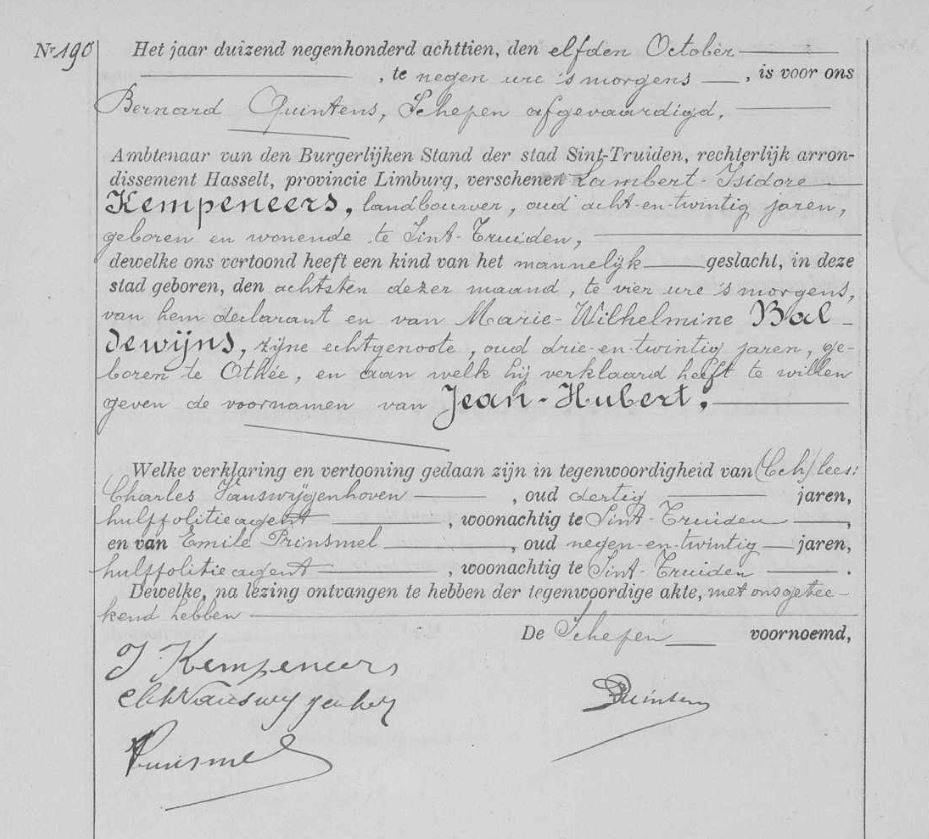 Nr 190
Het jaar duizend negenhonderd achttien, den elfden October
, te negen ure 's morgens , is voor ons
Bernard Quintens, Schepen afgevaardigd,
Ambtenaar van den Burgerlijken Stand der stad Sint-Truiden, rechterlijk arron-
dissement Hasselt, provincie Limburg, verschenen Lambert-Isidore
Kempeneers, landbouwer, oud acht-en-twintig jaren,
geboren en wonende te Sint-Truiden,
dewelke ons vertoond heeft een kind van het mannelijk geslacht, in deze
stad geboren, den achtsten dezer maand, te vier ure 's morgens,
van hem declarant en van Marie-Wilhelmine Bal-
dewijns, zijne echtgenoote, oud drie-en-twintig jaren, ge-
boren te Othée, en aan welk hij verklaard heeft te willen
geven de voornamen van Jean-Hubert.
Welke verklaring en vertooning gedaan zijn in tegenwoordigheid van (Cch) lees:
Charles Vanswijgenhoven , oud dertig jaren,
hulppolitieagent , woonachtig te Sint-Truiden ,
en van Emile Prinsmel , oud negen-en-twintig jaren,
hulppolitieagent , woonachtig te Sint-Truiden .
Dewelke, na lezing ontvangen te hebben der tegenwoordige akte, met ons getee-
kend hebben
De Schepen voornoemd,
I. Kempeneers
Quintens
Prinsmel